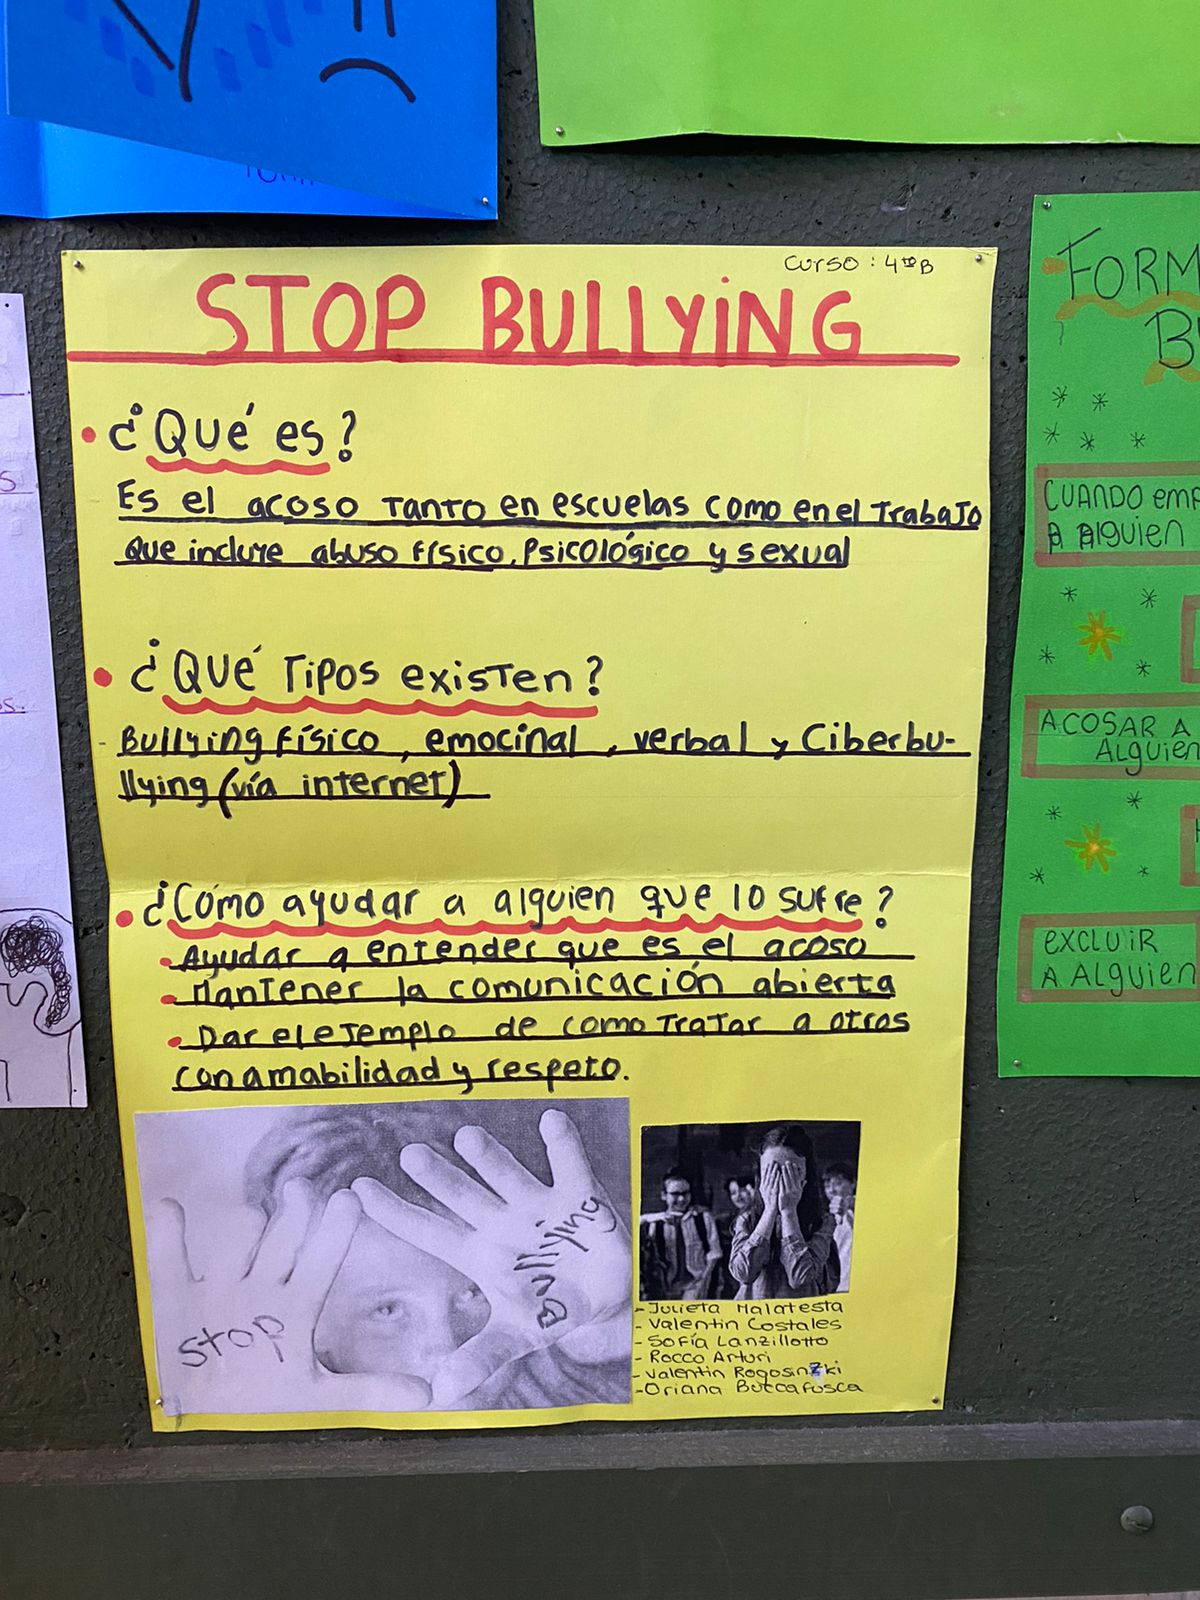 Curso : 4to B
STOP BULLYiNG
¿Qué es?
Es el acoso Tanto en escuelas como en el Trabajo
que incluye abuso físico, Psicológico y sexual
¿Qué Tipos existen?
- Bullying físico , emocinal , verbal y Ciberbu-
llying (vía internet)
¿Cómo ayudar a alguien que lo sufre?
Ayudar a entender que es el acoso
Mantener la comunicación abierta
Dar el eJemplo de como Tratar a otros
con amabilidad y respeto.
STOP
Bullying
- Julieta Malatesta
- Valentin Costales
- Sofía Lanzillotto
- Rocco Arturi
- Valentin Rogosinzki
- Oriana Buccafusca
FORM
B
CUANDO emp
A Alguien
ACOSAR A
Alguien
EXCLUiR
A ALguien